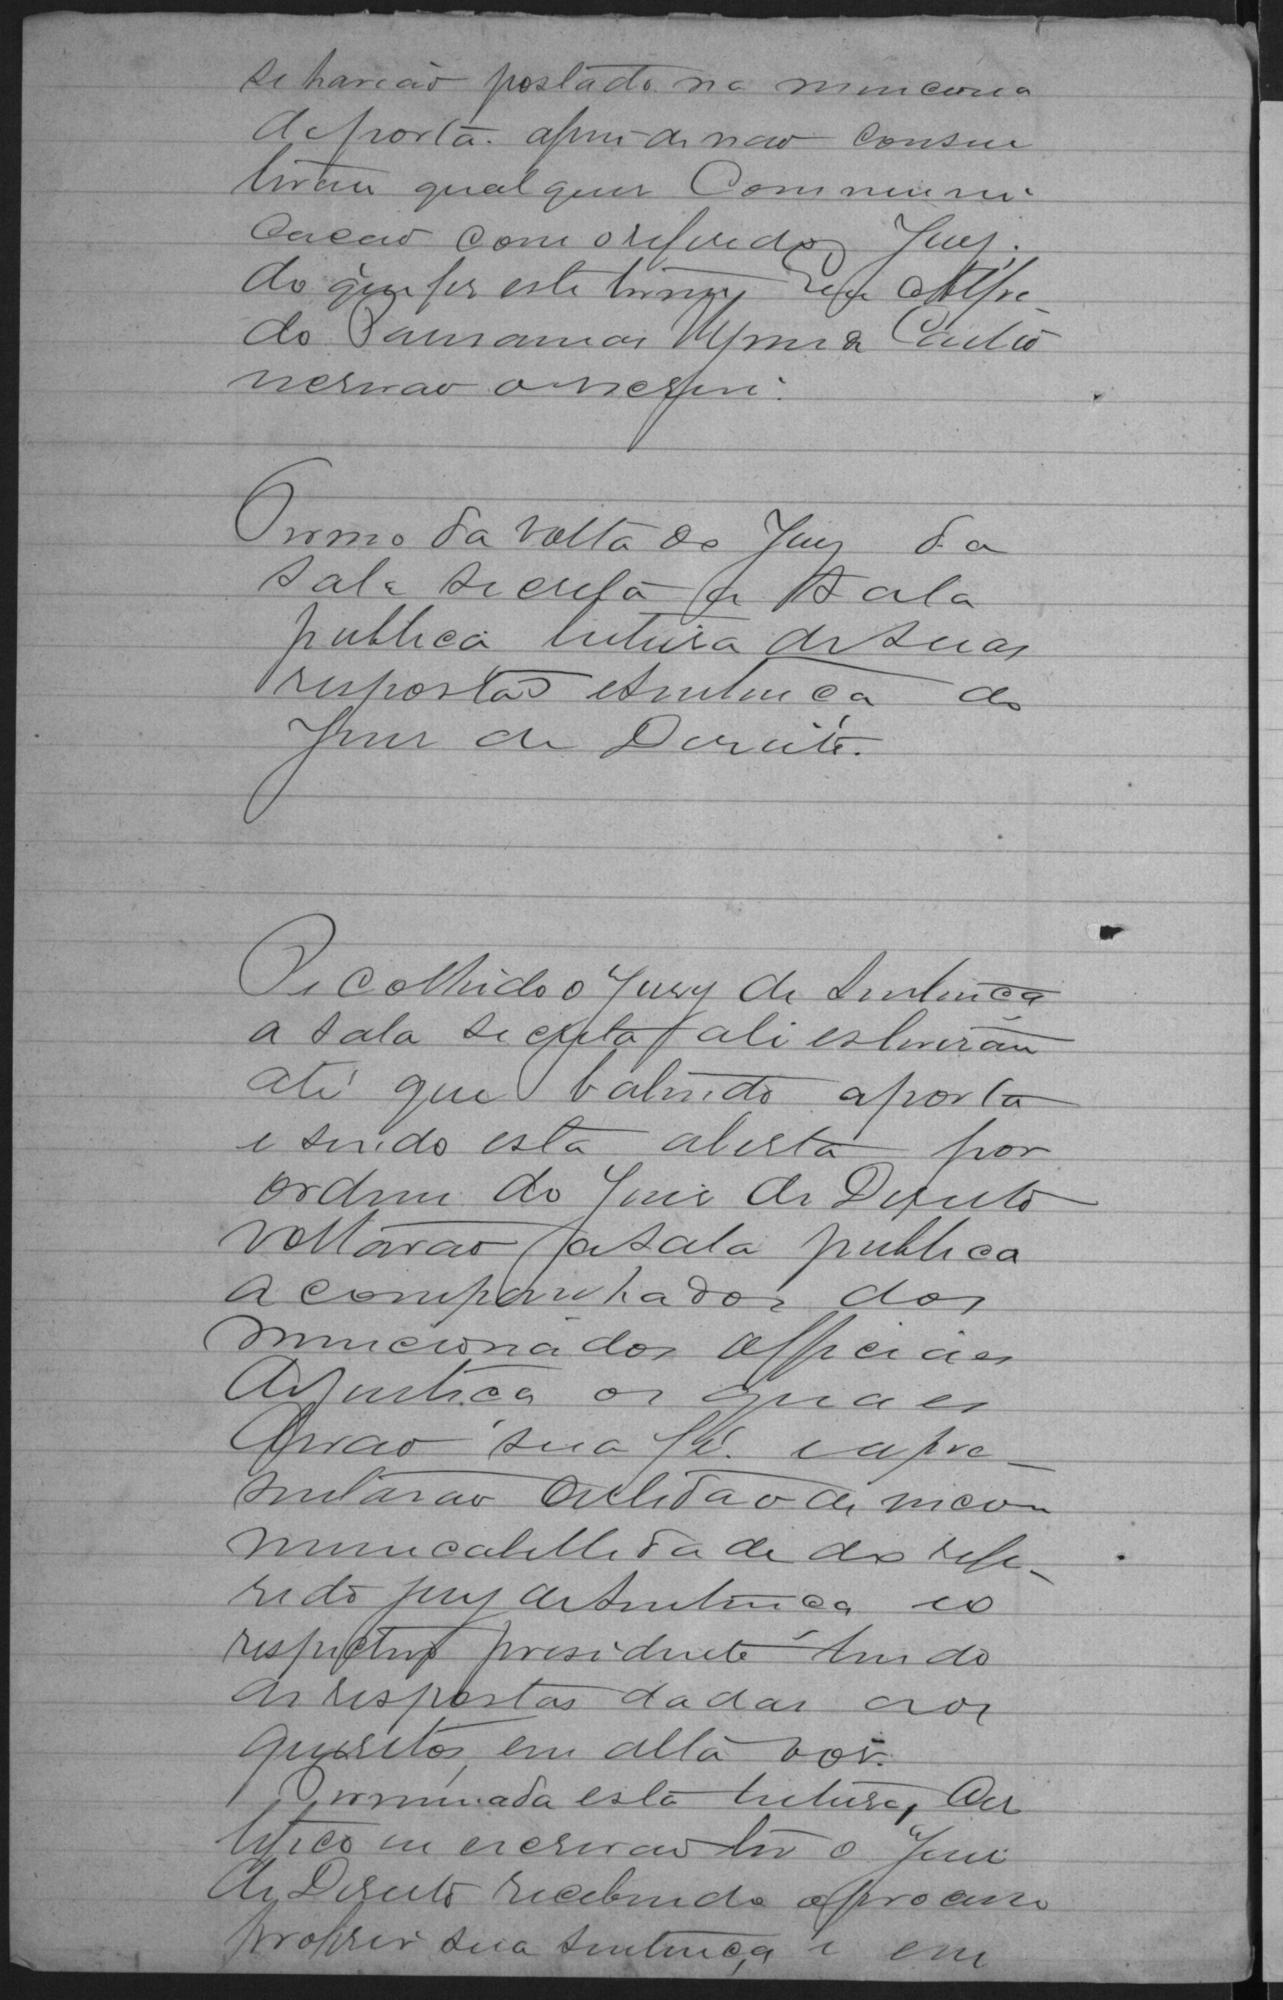 se haviáo postado na mencona
da porta. afim de nao consen
tirem qualquer Communi
cacao com o referido Jury.
do que fez este termo Eu Alfre
do
escrivao o escrevi.
Termo da volta do Jury da
sala secreta a sala
publica leitura de suas
respostas e sentença do
Juiz de Direito.
Recolhido o Jury de sentença
a sala secreta ali estiverão
até que batendo a porta
e sendo esta aberta por
ordem do Juiz de Direito
voltarao a sala publica
acompanhados dos
mencionados officiaes
de justiça os quaes
derao sua fé. e apre_
sentarao certidao de incom
municabillidade do refe_
rido jury de sentença e o
respectivo presidente lendo
as respostas dadas aos
quesitos, em alta voz.
Terminada esta leitura,
escrivao o Juiz
de Direito recebendo o processo
proferio sua sentença e em